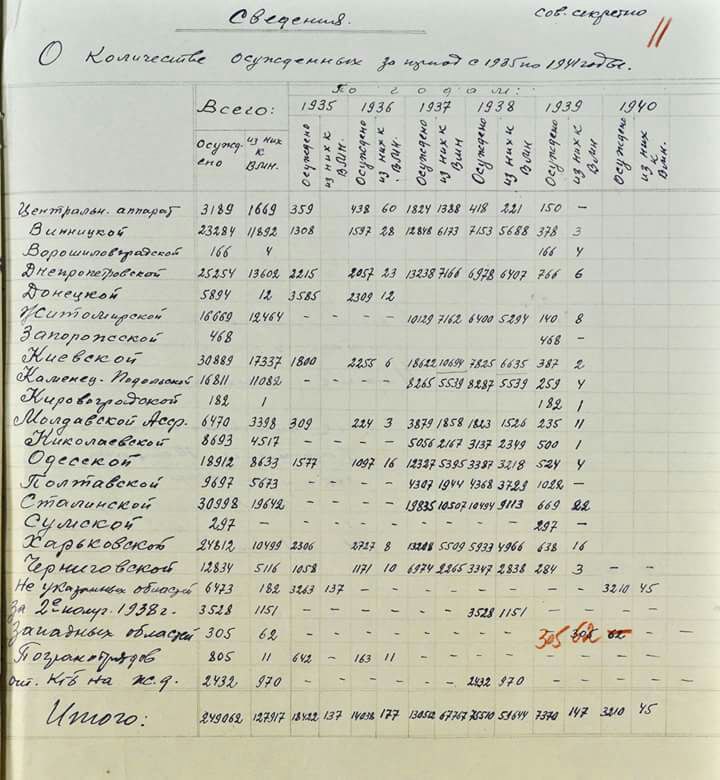 Сведения.
сов. секретно
11
О Количестве осужденных за период с 1935 по 1941 годы.
По годам:
Всего: 1935 1936 1937 1938 1939 1940
Осужд-ено из них к ВМН. Осуждено из них к ВМН. Осуждено из них к ВМН. Осуждено из них к ВМН Осуждено из них к ВМН Осуждено из них к ВМН Осуждено из них к ВМН.
Центральн. аппарат 3189 1669 359 438 60 1824 1388 418 221 150 –
Винницкой 23284 11892 1308 1597 28 12848 6173 7153 5688 378 3
Ворошиловградской 166 4 166 4
Днепропетровской 25254 13602 2215 2057 23 13238 7166 6978 6407 766 6
Донецкой 5894 12 3585 2309 12
Житомирской 16669 12464 – – – – 10129 7162 6400 5294 140 8
Запорожсской 468 468 –
Киевской 30889 17337 1800 2255 6 18622 10694 7825 6635 387 2
Каменец. Подольской 16811 11082 – – – – 8265 5539 8287 5539 259 4
Кировоградской 182 1 182 1
Молдавской Асср. 6470 3398 309 224 3 3879 1858 1823 1526 235 11
Николаевской 8693 4517 – – – – 5056 2167 3137 2349 500 1
Одесской 18912 8633 1577 1097 16 12327 5395 3387 3218 524 4
Полтавской 9697 5673 – – – – 4307 1944 4368 3729 1022 –
Сталинской 30998 19642 – – – – 19835 10507 10494 9113 669 22
Сумской 297 – – – – – – – – – 297 –
Харьковской 24812 10499 2306 – 2727 8 13208 5509 5933 4966 638 16
Черниговской 12834 5116 1058 – 1171 10 6974 2265 3347 2838 284 3 – –
Не указанных областей 6473 182 3263 137 – – – – – – – – 3210 45
За 2е полуг. 1938 г. 3528 1151 – – – – – – 3528 1151 – – – –
Западных областей 305 62 – – – – – – – – 305 62 305 62 –
Погранотрядов 805 11 642 – 163 11 – – – – – – – – –
от. КГБ на ж.д. 2432 970 – – – – – – 2432 970 – – – – –
Итого: 249062 127917 18422 137 14038 177 130502 67767 75510 59644 7370 147 3210 45